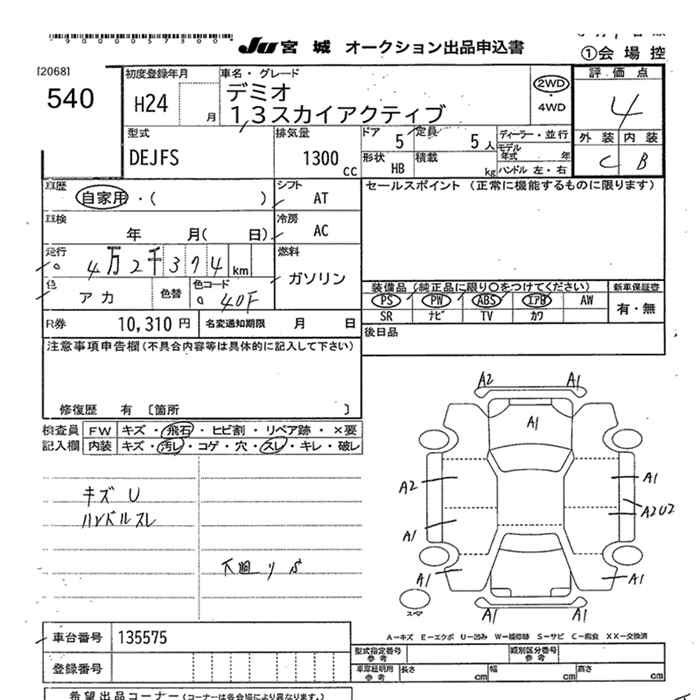 JU 宮城 オークション出品申込書
①会場控
[2068]
540
初度登録年月
H24 月
車名・グレード
デミオ
1,3スカイアクティブ
2WD
・
4WD
評価点
4
外装 内装
C B
型式
DEJFS
排気量
1300 cc
ドア 5
定員 5 人
形状 HB
積載 kg
ディーラー・並行
モデル年式 年
ハンドル 左・右
車歴
自家用・( )
シフト AT
セールスポイント (正常に機能するものに限ります)
車検
年 月( 日)
冷房 AC
走行
4万2千374km
燃料
ガソリン
色
アカ
色替
色コード
40F
装備品(純正品に限り○をつけてください)
新車保証書
PS PW ABS エアB AW
SR ナビ TV カワ
有・無
R券 10,310円
名変通知期限 月 日
後日品
注意事項申告欄(不具合内容等は具体的に記入して下さい)
修復歴 有 〔箇所 〕
検査員 FW キズ・飛石・ヒビ割・リペア跡・×要
記入欄 内装 キズ・汚レ・コゲ・穴・スレ・キレ・破レ
キズ U
ハンドルスレ
A2 A1
A1
A2 A1
A2U2
A1
A1 A1
スペア
A1 A1
A-キズ E-エクボ U-凹み W-補修跡 S-サビ C-腐食 XX-交換済
車台番号 135575
登録番号
型式指定番号
参考
類別区分番号
参考
車庫証明用
参考
長さ cm 幅 cm 高さ cm
希望出品コーナー(コーナーは各会場により異なります。)